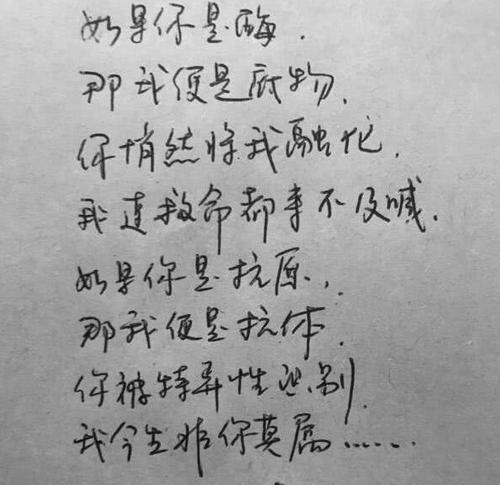 如果你是酶.
那我便是底物.
你悄然将我融化.
我连救命都来不及喊.
如果你是抗原.
那我便是抗体.
你被特异性识别.
我今生非你莫属……